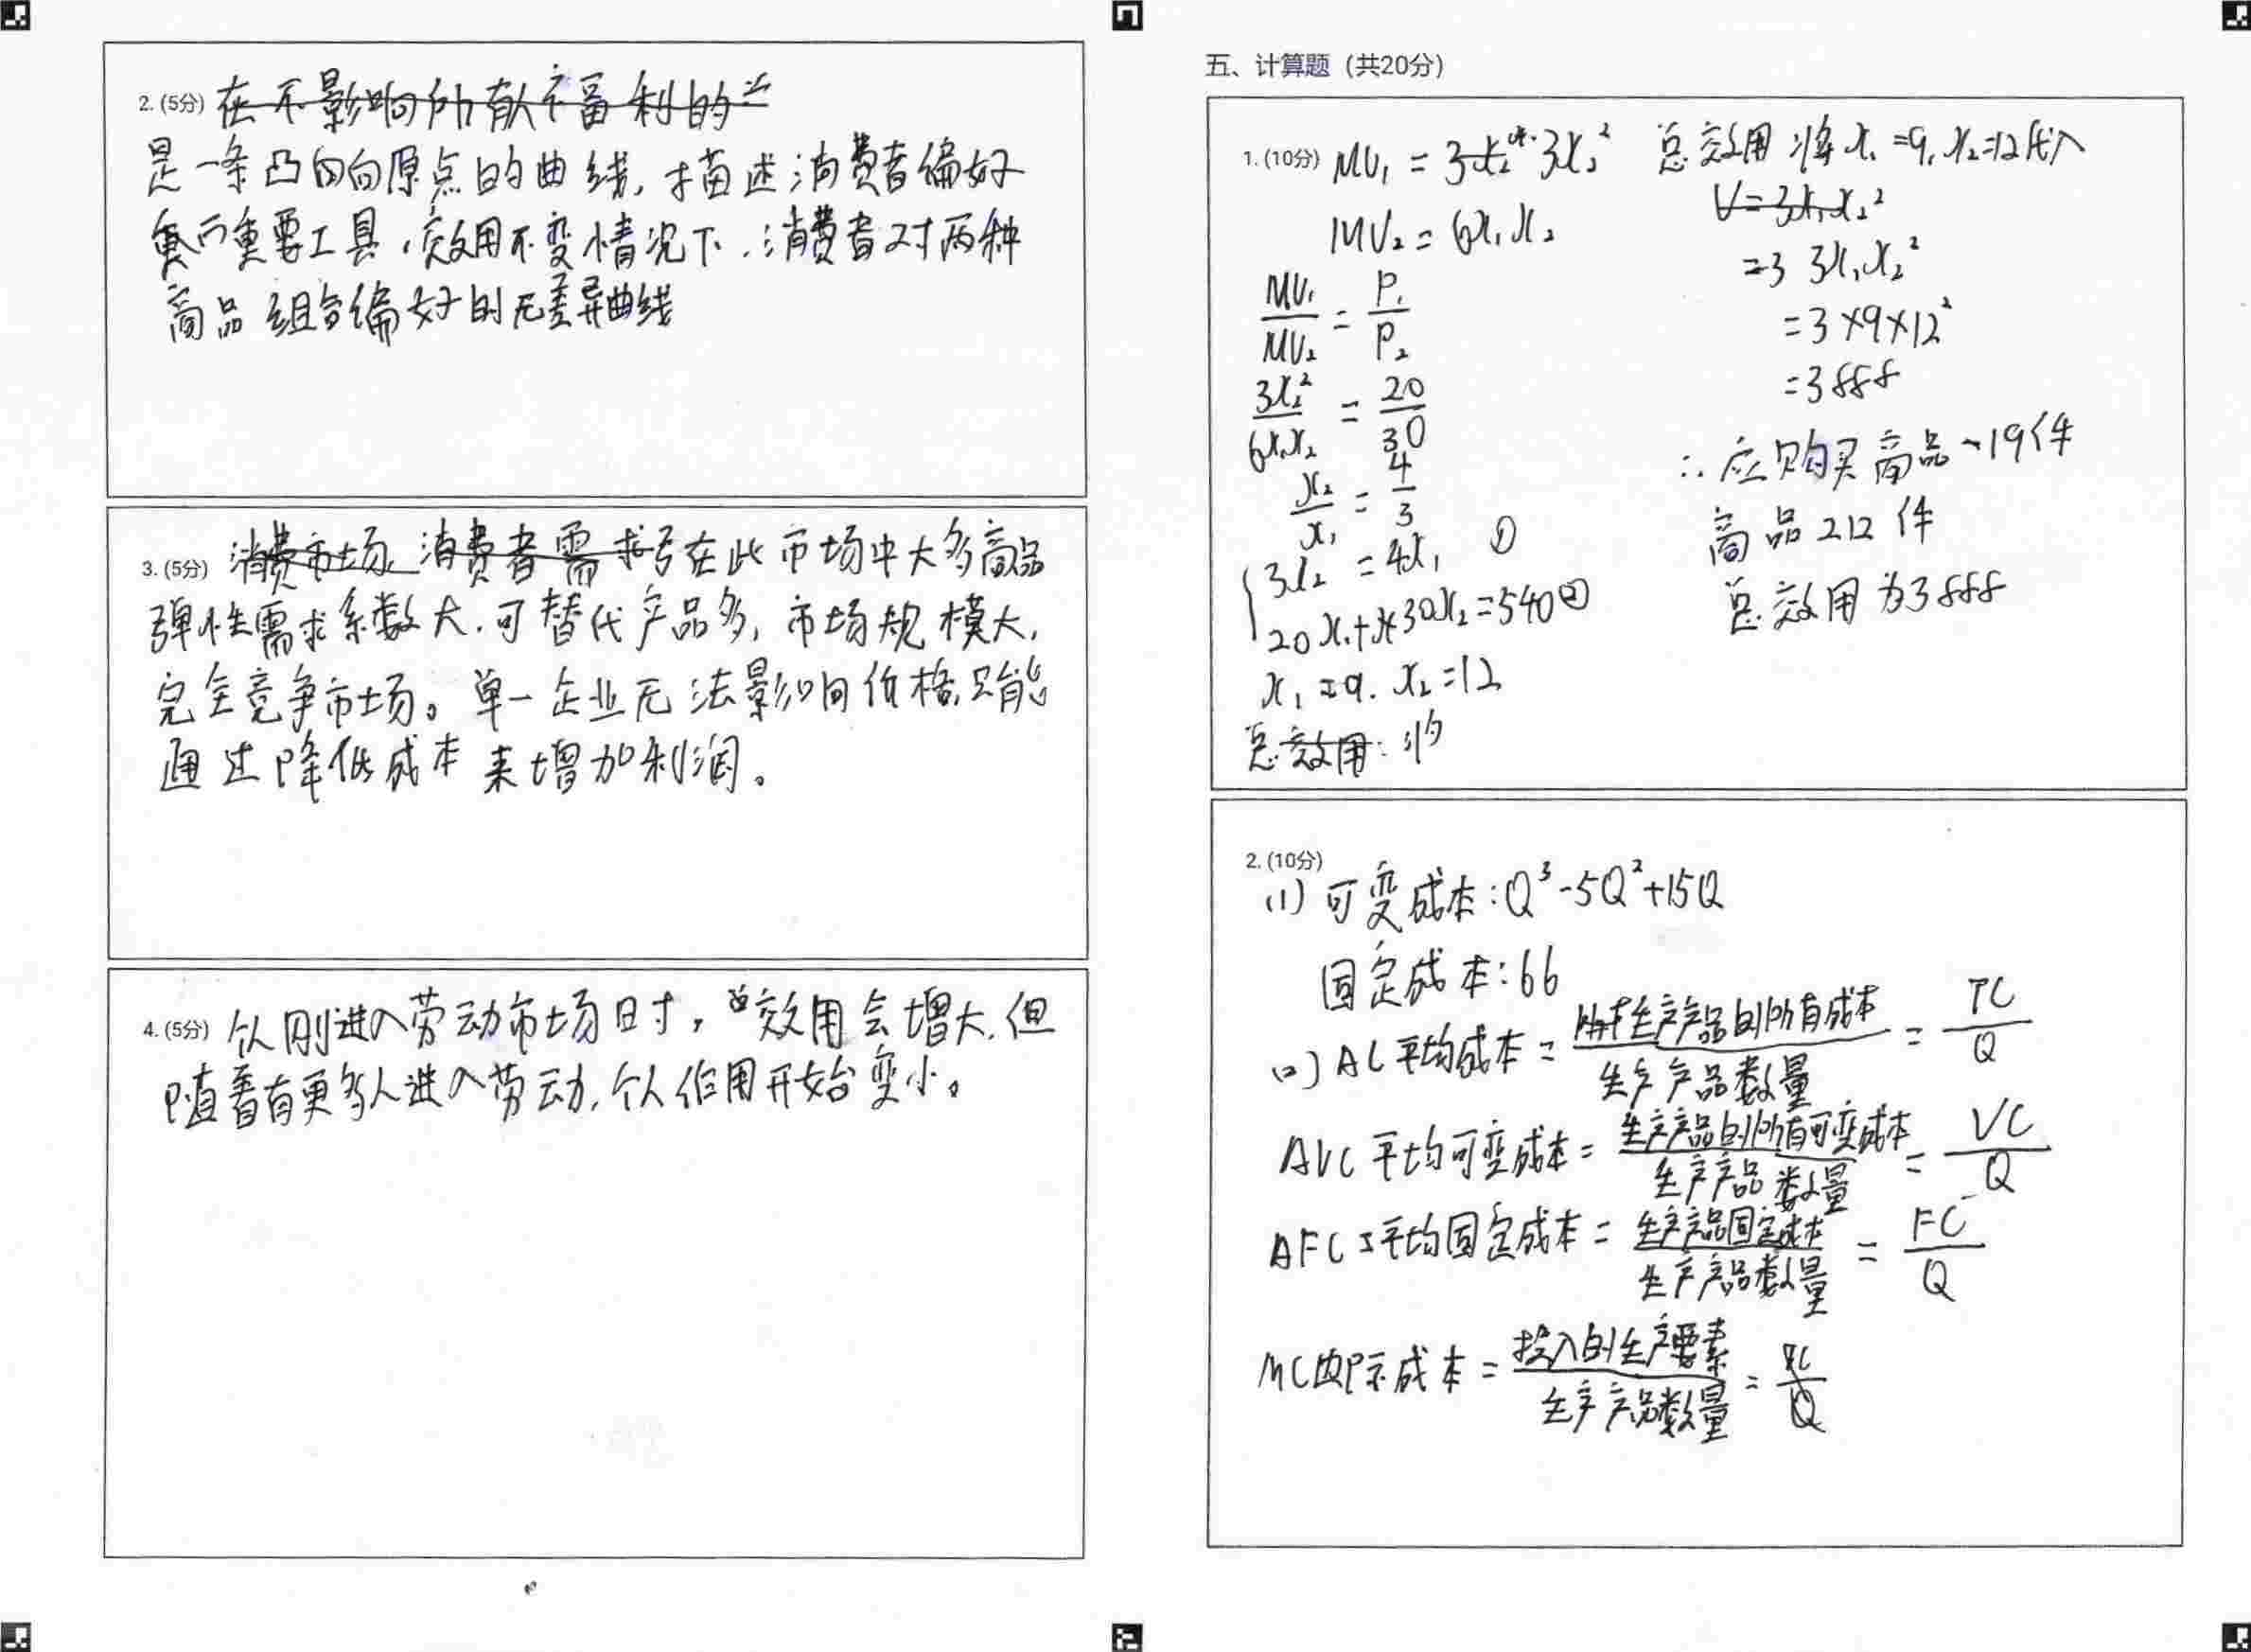 2. (5分) 在不影响所有人福利的
是一条凸向向原点的曲线, 描述消费者偏好
重要工具, 效用不变情况下, 消费者对两种
商品组合偏好的无差异曲线
3. (5分) 消费市场 消费者需求 在此市场中大多商品
弹性需求系数大, 可替代产品多, 市场规模大,
完全竞争市场。单一企业无法影响价格, 只能
通过降低成本来增加利润。
4. (5分) 个人刚进入劳动市场时, 效用会增大, 但
随着有更多人进入劳动, 个人作用开始变小。
五、计算题 (共20分)
1. (10分) MU₁ = 3x₂²
MU₂ = 6x₁x₂
MU₁/MU₂ = P₁/P₂
3x₂²/6x₁x₂ = 20/30
x₂/x₁ = 4/3
3x₂ = 4x₁ ①
20x₁+30x₂=540 ②
x₁=9. x₂=12
总效用: 将
总效用 将x₁=9, x₂=12代入
U=3x₁x₂²
=3 3x₁x₂²
=3×9×12²
=3888
∴应购买商品1 9件
商品2 12件
总效用为3888
2. (10分)
(1) 可变成本: Q³-5Q²+15Q
固定成本: 66
(2) AC平均成本 = 生产产品的所有成本/生产产品数量 = TC/Q
AVC平均可变成本 = 生产产品的所有可变成本/生产产品数量 = VC/Q
AFC平均固定成本 = 生产产品固定成本/生产产品数量 = FC/Q
MC边际成本 = 投入的生产要素/生产产品数量 =